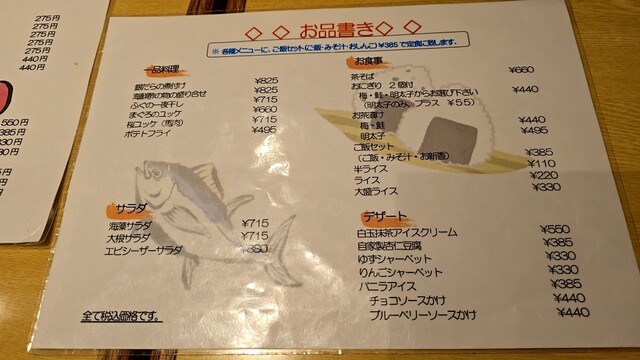 275円
275円
275円
275円
275円
440円
440円
550円
385円
330円
◇ ◇ お品書き ◇ ◇
※ 各種メニューに、ご飯セット(ご飯・みそ汁・おしんこ)¥385で定食に致します。
一品料理
銀だらの煮付け ¥825
¥825
ふぐの一夜干し ¥715
まぐろのユッケ ¥660
桜ユッケ(馬肉) ¥715
ポテトフライ ¥495
サラダ
海藻サラダ ¥715
大根サラダ ¥715
エビシーザーサラダ ¥380
全て税込価格です。
お食事
茶そば ¥660
おにぎり 2個付 ¥440
梅・鮭・明太子からお選び下さい
(明太子のみ、プラス ¥55)
お茶漬け
梅・鮭 ¥440
明太子 ¥495
ご飯セット
(ご飯・みそ汁・お新香) ¥385
半ライス ¥110
ライス ¥220
大盛ライス ¥330
デザート
白玉抹茶アイスクリーム ¥550
自家製杏仁豆腐 ¥385
ゆずシャーベット ¥330
りんごシャーベット ¥330
バニラアイス ¥385
チョコソースかけ ¥440
ブルーベリーソースかけ ¥440